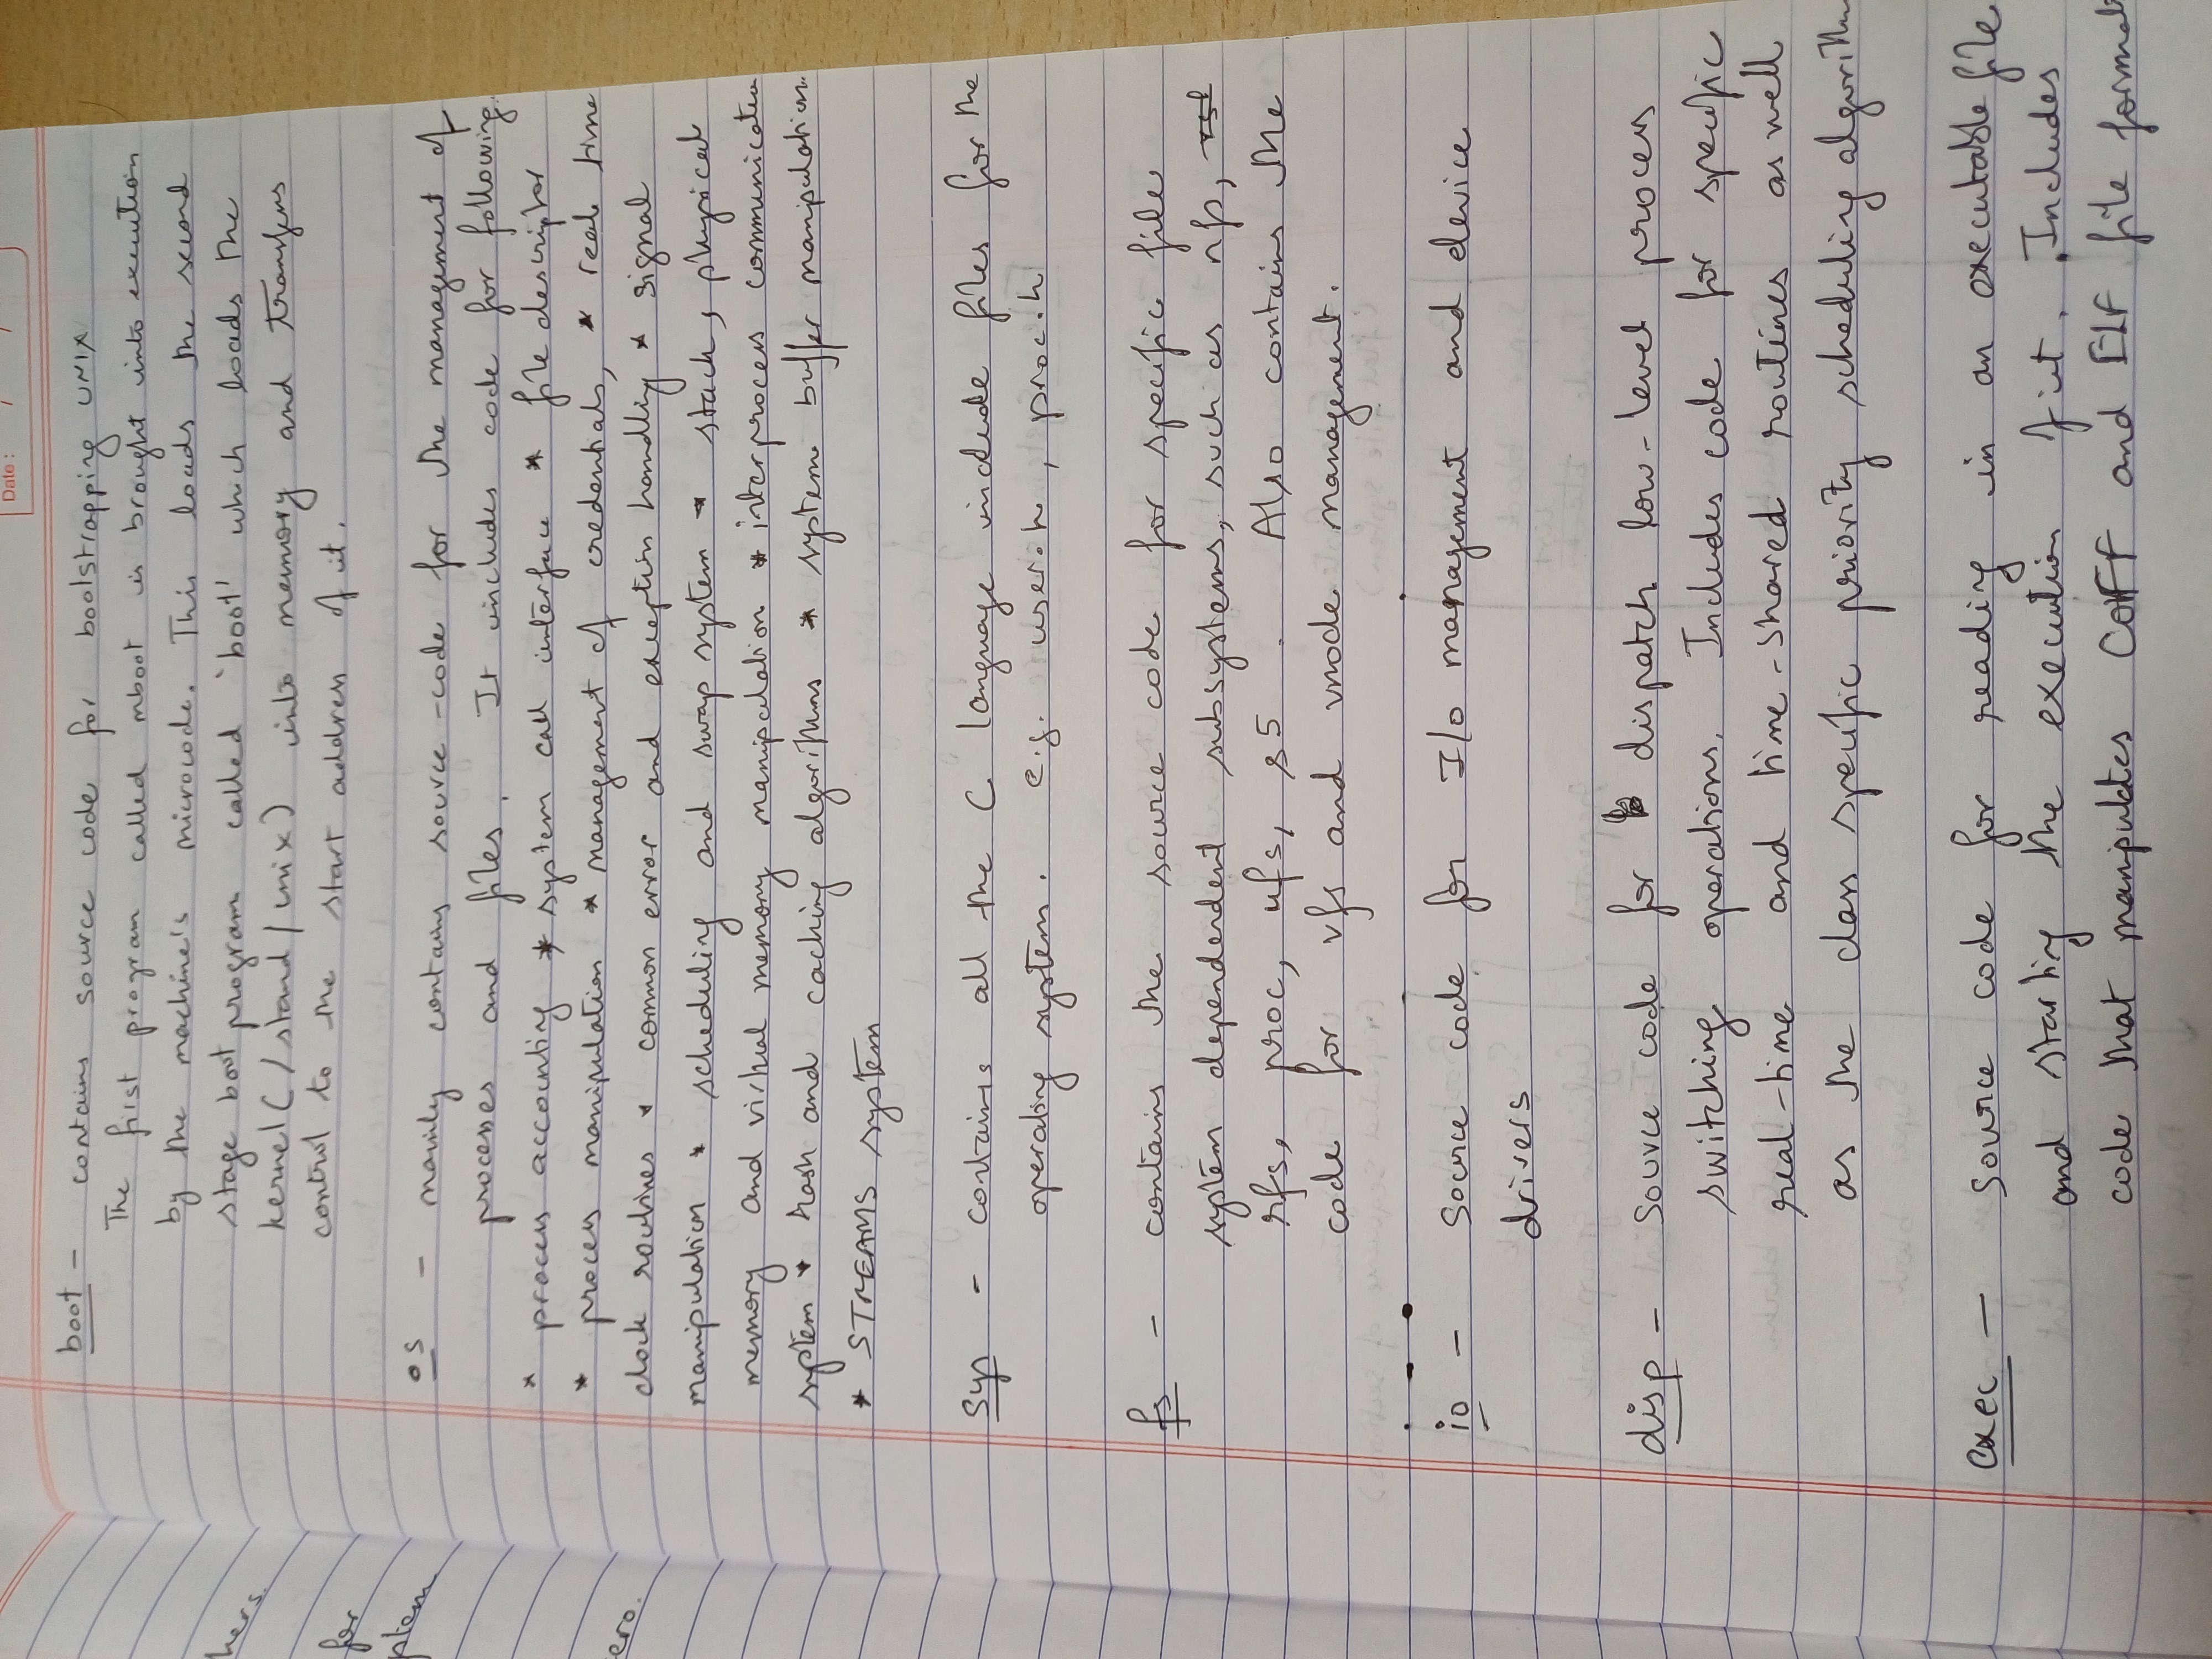 Date: / /
boot - contains source code for bootstrapping UNIX
The first program called mboot is brought into execution
by the machine's microcode. This loads the second
stage boot program called 'boot' which loads the
kernel (/stand/unix) into memory and transfers
control to the start address of it.
os - mainly contains source-code for the management of
processes and files. It includes code for following.
* process accounting * system call interface * file descriptor
* process manipulation * management of credentials, * real time
clock routines * common error and exception handling * signal
manipulation * scheduling and swap system * stack, physical
memory and virtual memory manipulation * interprocess communication
system * hash and caching algorithms * system buffer manipulation
* STREAMS system
sys - contains all the C language include files for the
operating system. e.g. user.h, proc.h
fs - contains the source code for specific file
system dependendent subsystems, such as nfs,
rfs, proc, ufs, s5. Also contains the
code for vfs and vnode management.
io - source code for I/O management and device
drivers
disp - source code for dispatch low-level process
switching operations. Includes code for specific
real-time and time-shared routines as well
as the class specific priority scheduling algorithm
exec - source code for reading in an executable file
and starting the execution of it. Includes
code that manipulates COFF and ELF file formats
hers.
for
ption
ero.